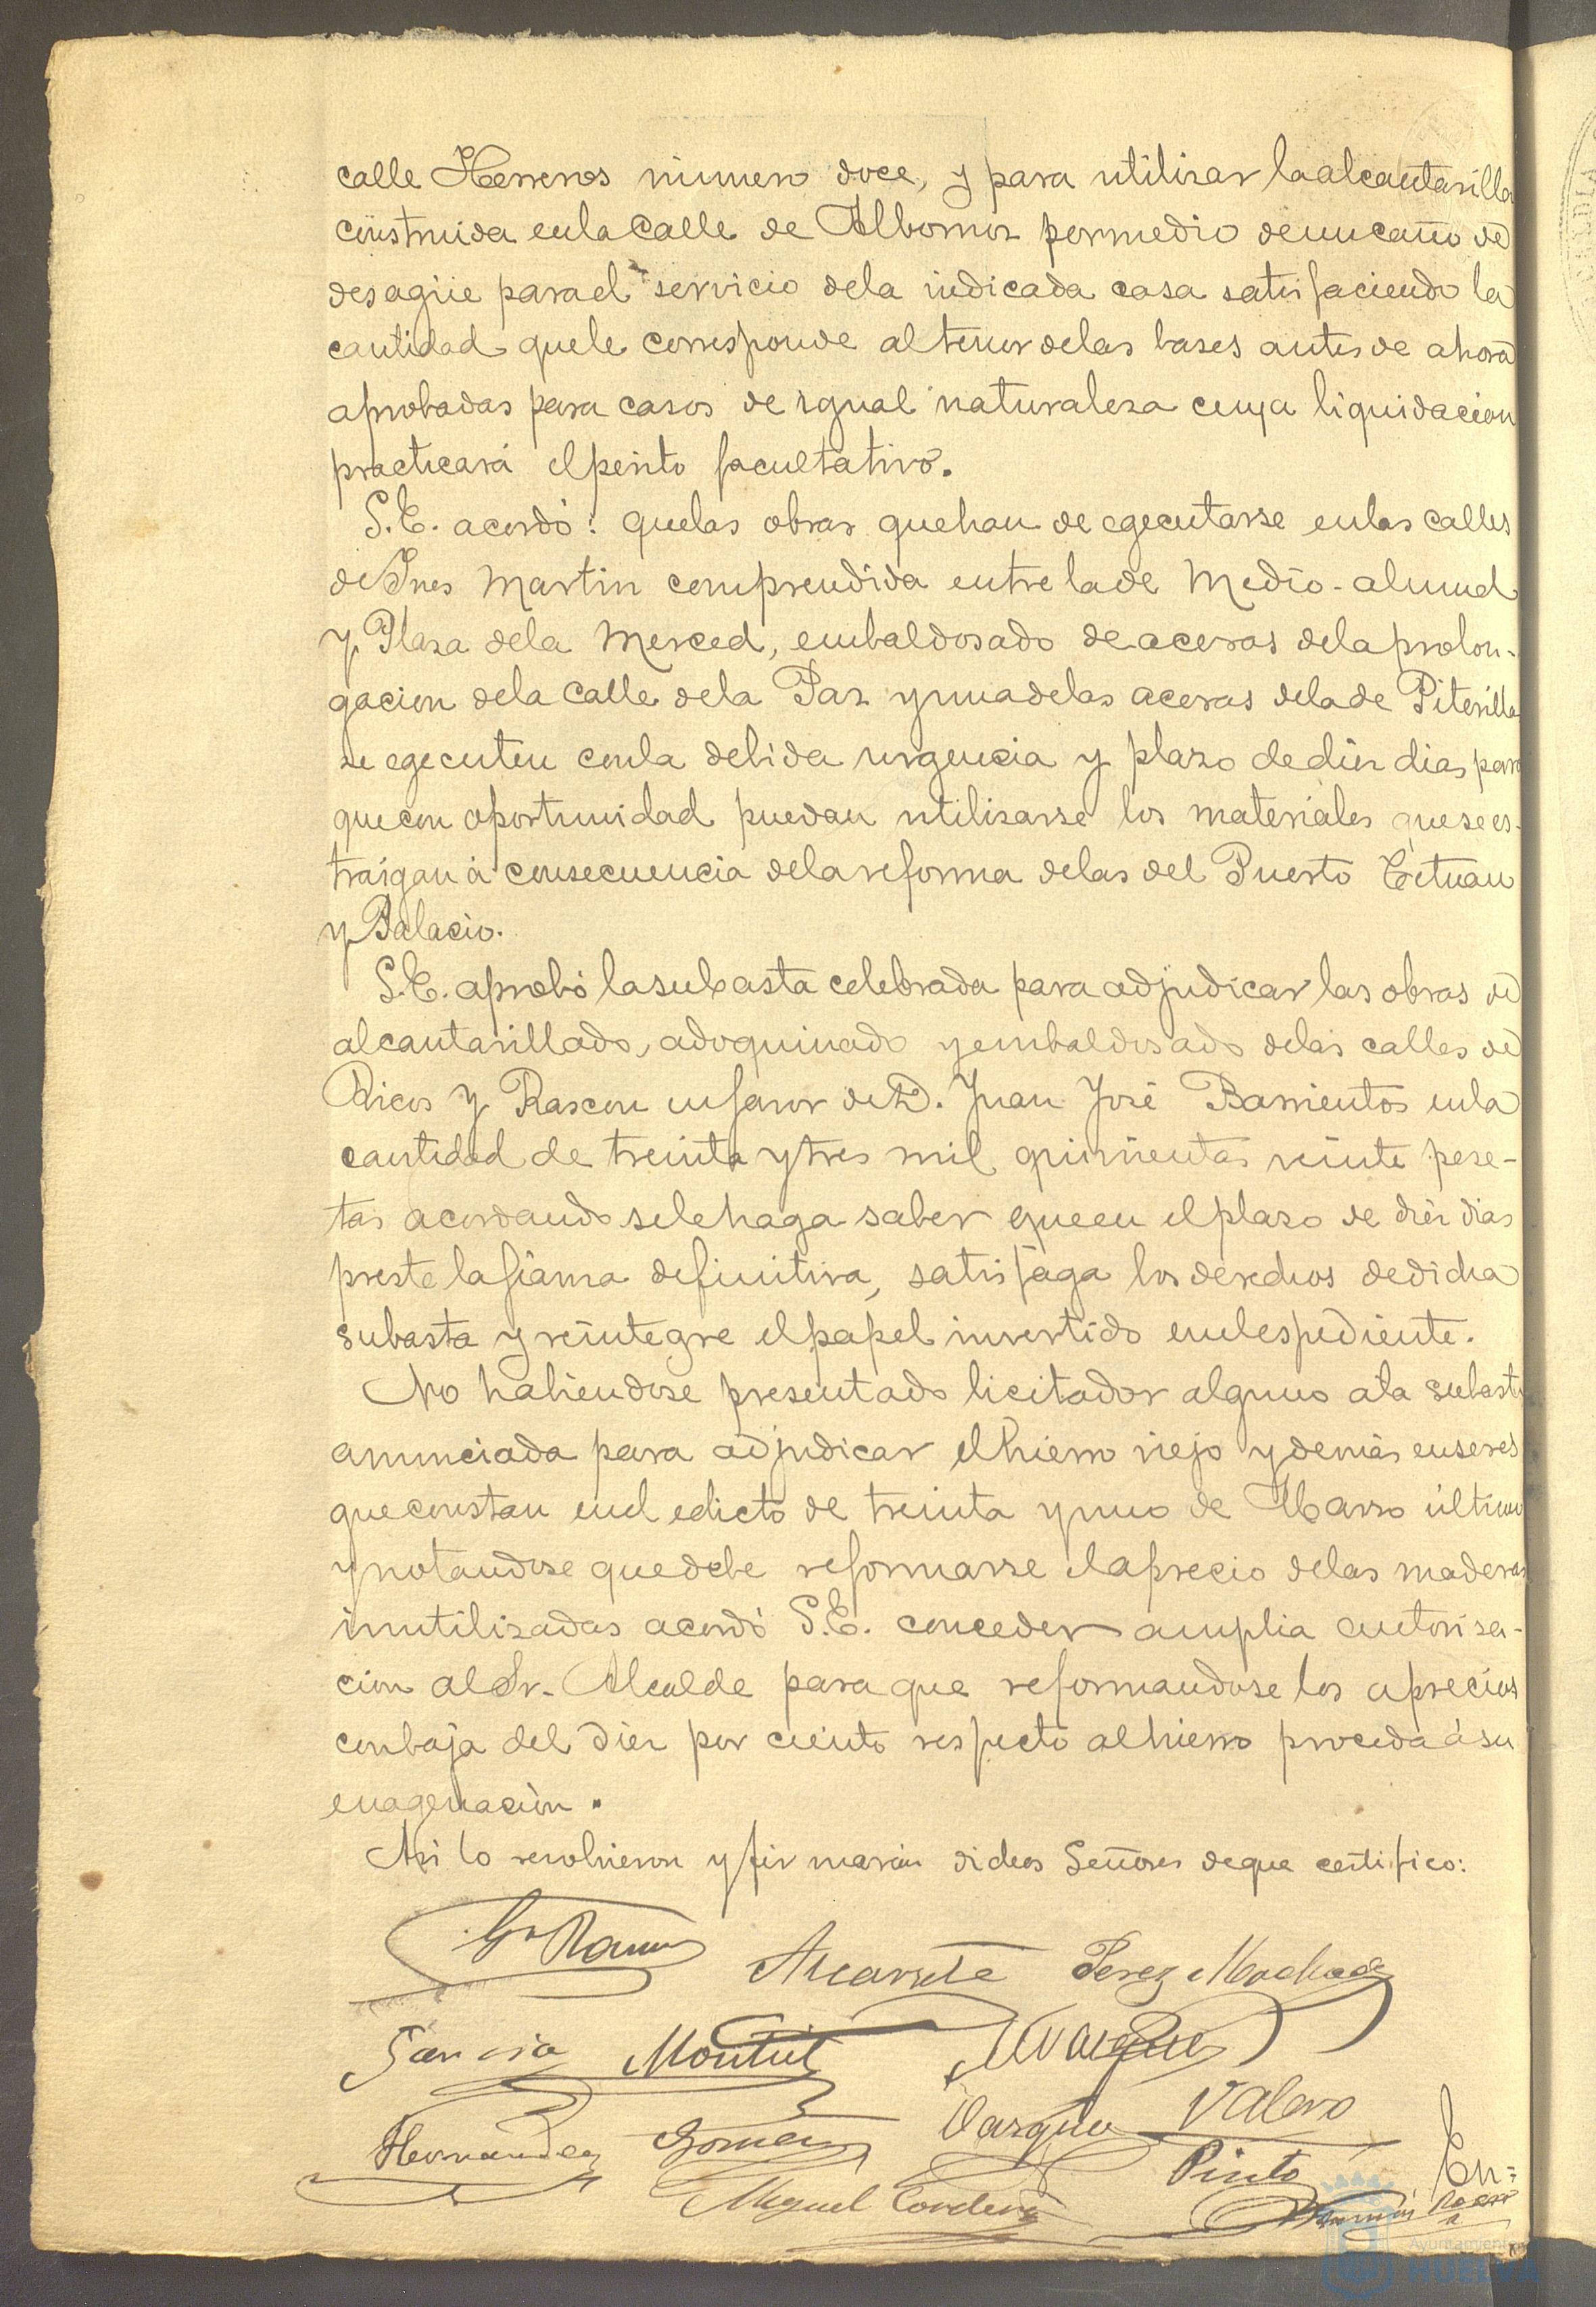 calle Herreros número doce, y para utilizar la alcantarilla
construida en la Calle de Albornoz por medio de un caño de
desagüe para el servicio de la indicada casa satisfaciendo la
cantidad que le corresponde al tenor de las bases antes de ahora
aprobadas para casos de igual naturaleza cuya liquidacion
practicará el perito facultativo.
S.E. acordó: que las obras que han de egecutarse en las calles
de Ines Martin comprendida entre la de Medio-almud
y Plaza de la Merced, embaldosado de aceras de la prolon-
gacion de la Calle de la Paz y una de las aceras de la de Piterilla
se egecuten con la debida urgencia y plazo de diez dias para
que con oportunidad puedan utilizarse los materiales que se es-
traigan á consecuencia de la reforma de las del Puerto Tetuan
y Palacio.
S.E. aprobó la subasta celebrada para adjudicar las obras de
alcantarillado, adoquinado y embaldosado de las calles de
Ricos y Rascon en favor de D. Juan José Barrientos en la
cantidad de treinta y tres mil quinientas veinte pese-
tas acordando se le haga saber que en el plazo de diez dias
preste la fianza definitiva, satisfaga los derechos de dicha
subasta y reintegre el papel invertido en el espediente.
No habiendose presentado licitador alguno a la subasta
anunciada para adjudicar el hierro viejo y demás enseres
que constan en el edicto de treinta y uno de Marzo último
y notandose que debe reformarse el aprecio de las maderas
inutilizadas acordó S.E. conceder amplia autoriza-
cion al Sr. Alcalde para que reformandose los aprecios
con baja del diez por ciento respecto al hierro proceda á su
enagenación.
Asi lo resolvieron y firmarán dichos Señores de que certifico:
Gª Ramos Azcarate Perez Machado
Garcia Montiel Vazquez
Hernandez Gomez Vazquez Valero
Miguel Cordero Pinto En=
Ayuntamiento
HUELVA